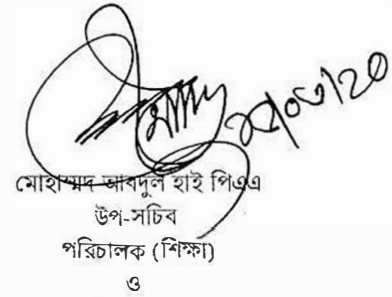 মোহাম্মদ আবদুল হাই পিএএ
উপ-সচিব
পরিচালক (শিক্ষা)
ও